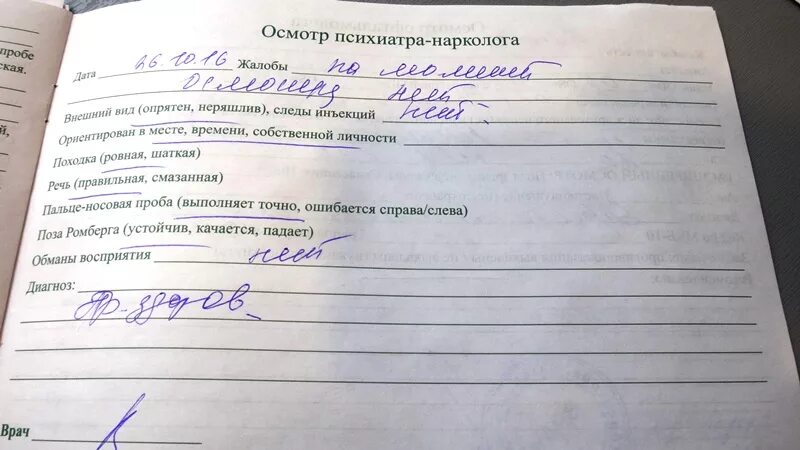 Осмотр психиатра-нарколога
пробе
ская.
Дата 26.10.16 Жалобы на момент
осмотра нет
Внешний вид (опрятен, неряшлив), следы инъекций нет
Ориентирован в месте, времени, собственной личности
Походка (ровная, шаткая)
Речь (правильная, смазанная)
Пальце-носовая проба (выполняет точно, ошибается справа/слева)
Поза Ромберга (устойчив, качается, падает)
Обманы восприятия нет
Диагноз:
Пр. здоров
Врач